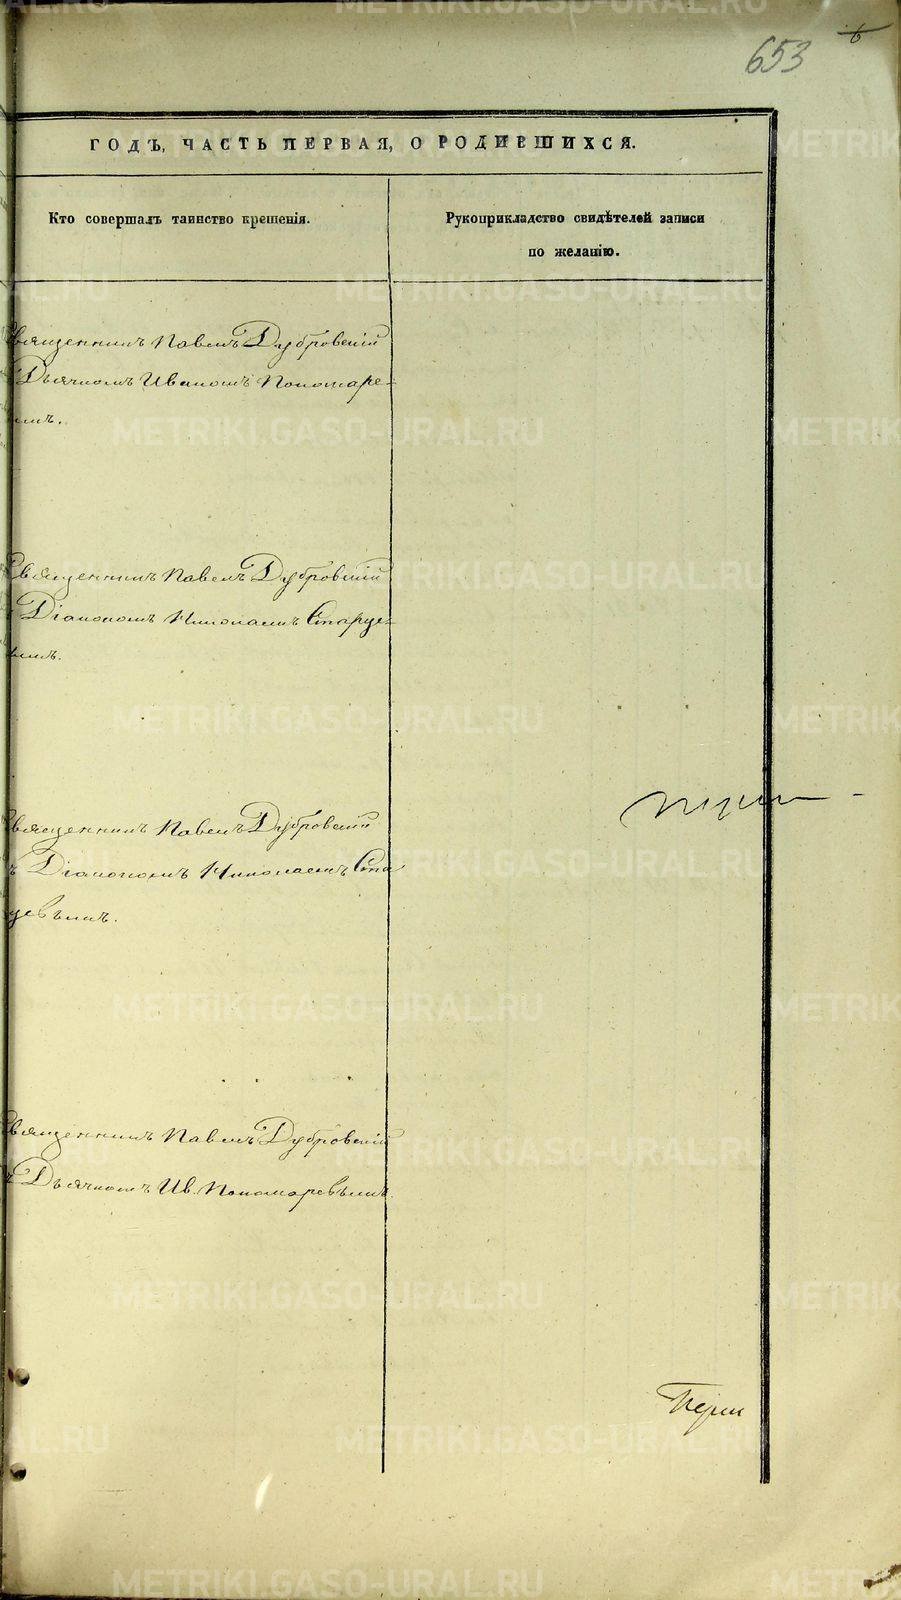 653
6
ГОДЪ, ЧАСТЬ ПЕРВАЯ, О РОДИВШИХСЯ.
Кто совершалъ таинство крещенія.
Рукоприкладство свидѣтелей записи
по желанію.
Священникъ Павелъ Дубровскій
Дьячкомъ Иваномъ Пономаре-
Священникъ Павелъ Дубровскій
Діакономъ Николаемъ Старце-
вымъ.
Священникъ Павелъ Дубровскій
ъ Діакономъ Николаемъ Ста
рцевымъ.
Священникъ Павелъ Дубровскій
ъ Дьячкомъ Ив. Пономаревымъ.
METRIKI.GASO-URAL.RU